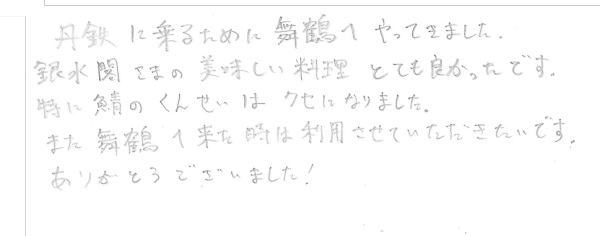 丹鉄に乗るために舞鶴へやってきました。
銀水閣さまの美味しい料理とても良かったです。
特に鯖のくんせいはクセになりました。
また舞鶴へ来た時は利用させていただきたいです。
ありがとうございました!